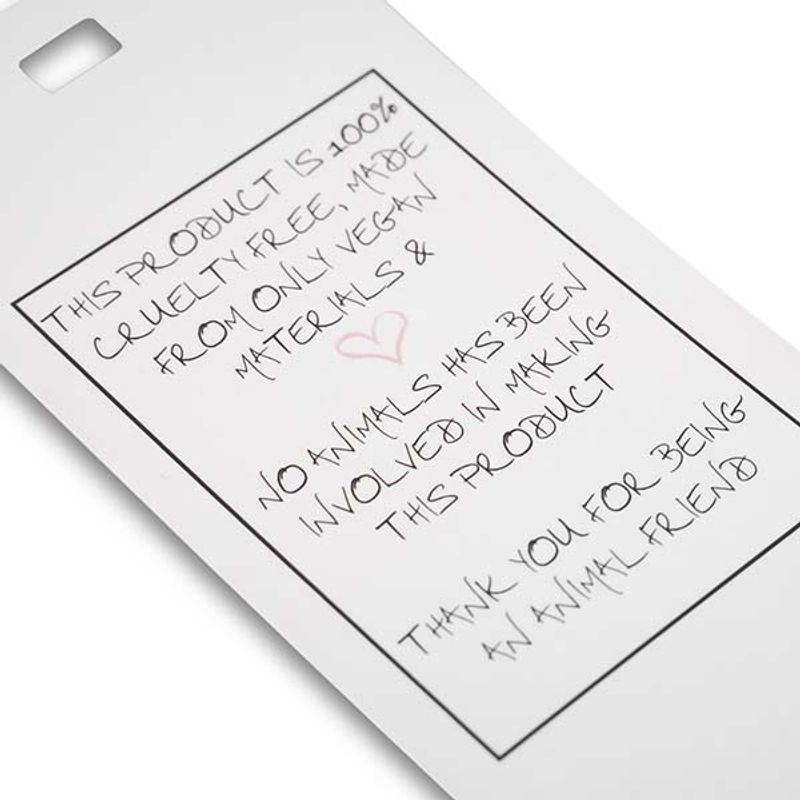 THIS PRODUCT IS 100%
CRUELTY FREE, MADE
FROM ONLY VEGAN
MATERIALS &
NO ANIMALS HAS BEEN
INVOLVED IN MAKING
THIS PRODUCT
THANK YOU FOR BEING
AN ANIMAL FRIEND